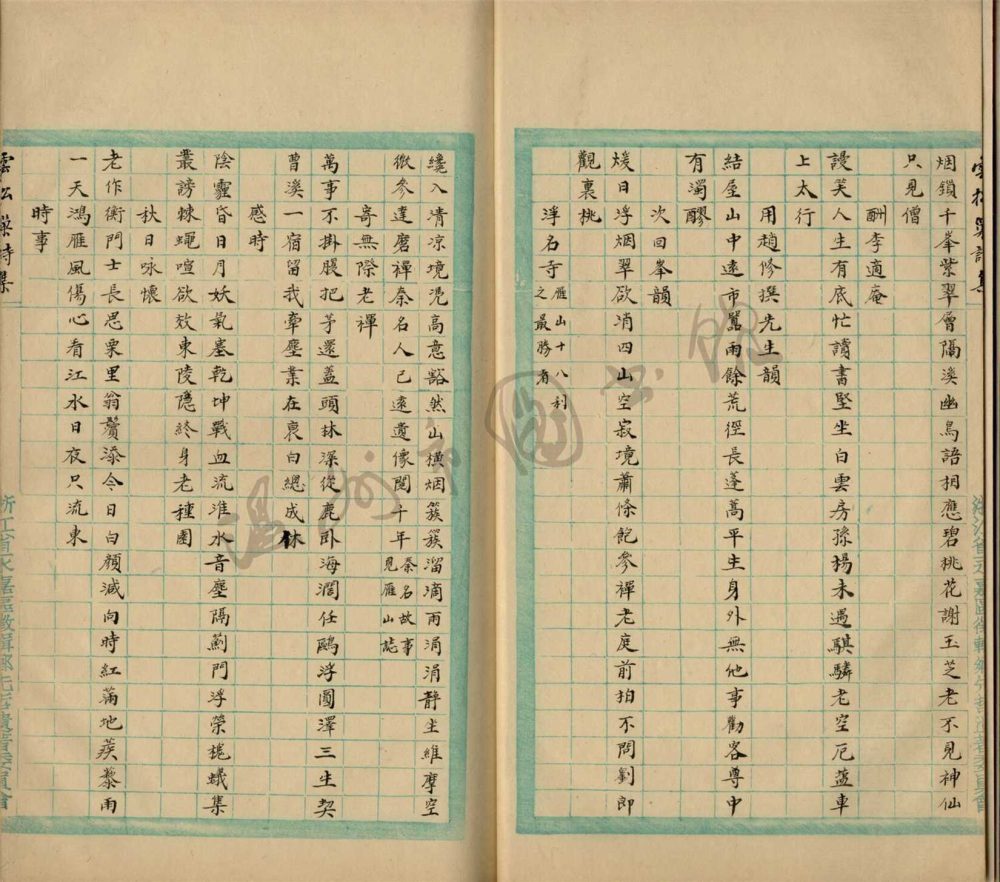 烟鎖千峯紫翠層隔溪幽鳥語相應碧桃花謝玉芝老不見神仙
只見僧
酬李適庵
謾笑人生有底忙讀書堅坐白雲房孫楊未遇騏驎老空厄鹽車
上太行
用趙修撰先生韻
結屋山中遠市囂雨餘荒徑長蓬蒿平生身外無他事勸客尊中
有濁醪
次回峯韻
煖日浮烟翠欲消四山空寂境蕭條飽參禪老庭前拍不問劉郎
觀裏桃
浮名寺雁山十八刹
之最勝者
纔入清凉境凭高意豁然山橫烟簇簇溜滴雨涓涓静坐維摩空
微參達磨禪秦名人已遠遺像閱千年秦名故事
見雁山誌
寄無際老禪
萬事不掛腮把茅還蓋頭林深從鹿卧海濶任鷗浮圓澤三生契
曹溪一宿留我牽塵業在衷白總成休
感時
陰霾昏日月妖氣塞乾坤戰血流淮水音塵隔薊門浮榮槐蟻集
叢謗棘蠅喧欲效東陵隱終身老種園
秋日咏懷
老作衡門士長思栗里翁鬢添今日白顔减向時紅蒲地蒺藜雨
一天鴻雁風傷心看江水日夜只流東
時事
雲松巢詩集
溫州市圖書館